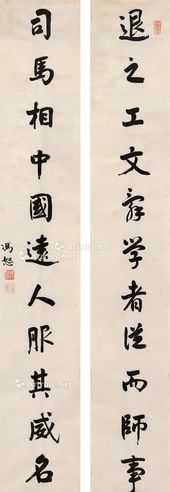 退之工文辞学者从而師事
司馬相中國遠人服其威名
馮恕